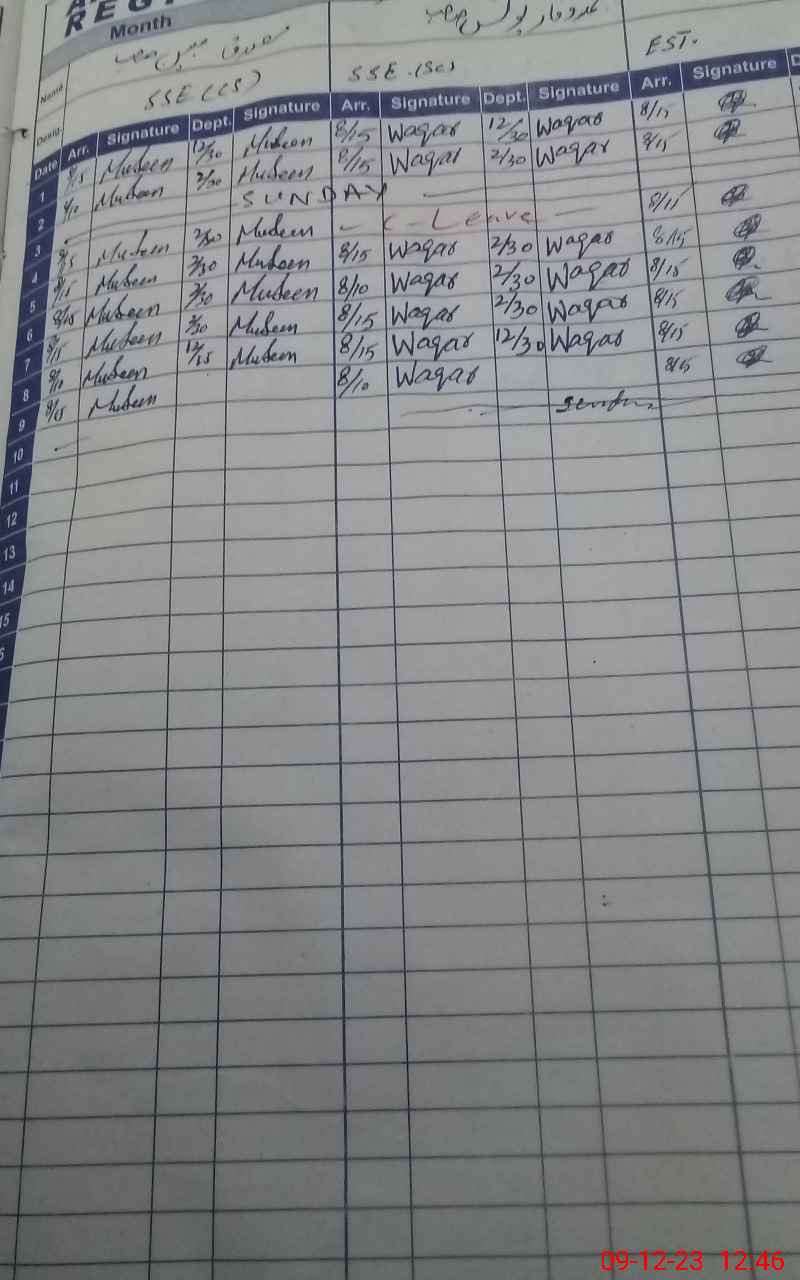 REG
Month
Name
SSE (CS)
SSE.(Sc)
EST.
Desig.
Date Arr. Signature Dept. Signature Arr. Signature Dept. Signature Arr. Signature
1 8/15 Mubeen 12/30 Mubeen 8/15 Waqar 12/30 Waqar 8/15
2 8/10 Mubeen 2/30 Mubeen 8/15 Waqar 2/30 Waqar 8/15
3 SUNDAY
4 8/15 Mubeen 2/30 Mubeen C-Leave 8/15
5 8/15 Mubeen 2/30 Mubeen 8/15 Waqar 2/30 Waqar 8/15
6 8/15 Mubeen 2/30 Mubeen 8/10 Waqar 2/30 Waqar 8/15
7 8/15 Mubeen 2/30 Mubeen 8/15 Waqar 2/30 Waqar 8/15
8 8/10 Mubeen 12/55 Mubeen 8/15 Waqar 12/30 Waqar 8/15
9 8/15 Mubeen 8/10 Waqar 8/15
10
11
12
13
14
15
09-12-23 12:46